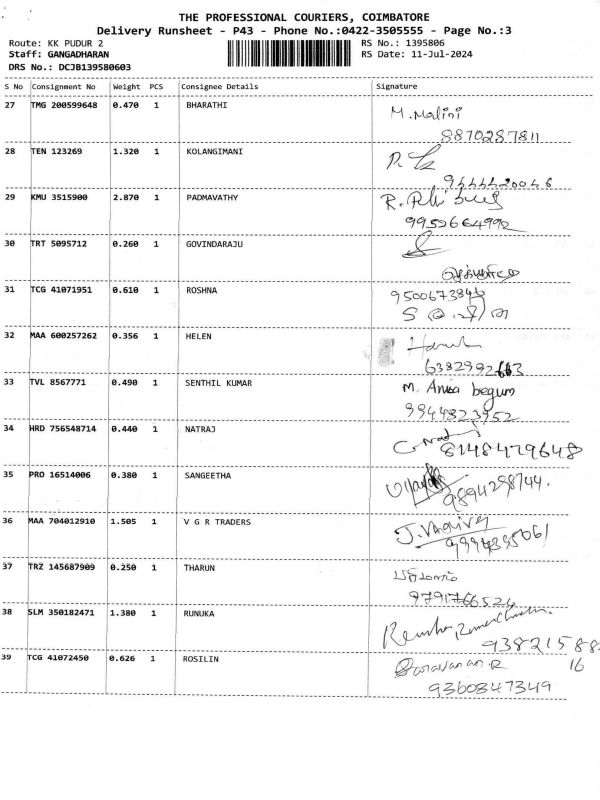 THE PROFESSIONAL COURIERS, COIMBATORE
Delivery Runsheet - P43 - Phone No.:0422-3505555 - Page No.:3
Route: KK PUDUR 2 RS No.: 1395806
Staff: GANGADHARAN RS Date: 11-Jul-2024
DRS No.: DCJB139580603
S No Consignment No Weight PCS Consignee Details Signature
27 TMG 200599648 0.470 1 BHARATHI M. Malini
8870287811
28 TEN 123269 1.320 1 KOLANGIMANI
9444420046
29 KMU 3515900 2.870 1 PADMAVATHY R.
9952664992
30 TRT 5095712 0.260 1 GOVINDARAJU
31 TCG 41071951 0.610 1 ROSHNA 9500673846
32 MAA 600257262 0.356 1 HELEN
6382992663
33 TVL 8567771 0.490 1 SENTHIL KUMAR M. Anisa begum
9944823952
34 HRD 756548714 0.440 1 NATRAJ
8148479648
35 PRO 16514006 0.380 1 SANGEETHA
9894298744.
36 MAA 704012910 1.505 1 V G R TRADERS
37 TRZ 145687909 0.250 1 THARUN
9791766524
38 SLM 350182471 1.380 1 RUNUKA
93821588
39 TCG 41072450 0.626 1 ROSILIN Saravanan R 16
9360847349